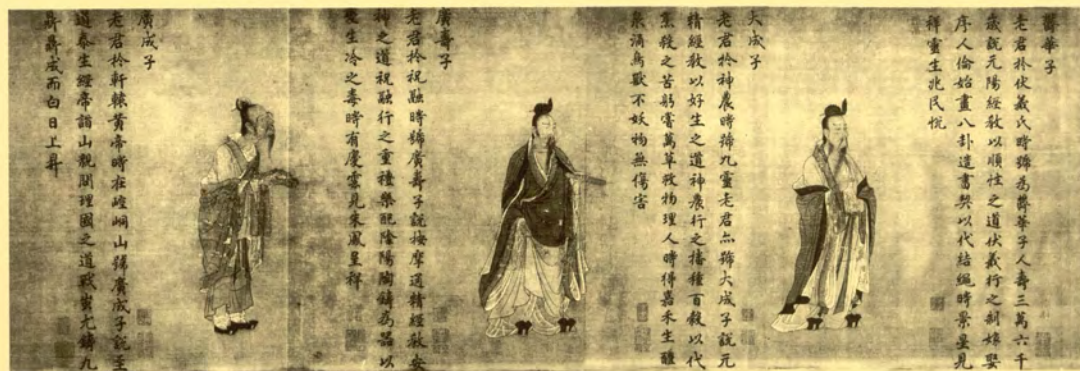 欝華子
老君於伏羲氏時號為欝華子人壽三萬六千
歲說元陽經教以順性之道伏羲行之制嫁娶
序人倫始畫八卦造書契以代結繩時景星見
祥靈生兆民悅
大成子
老君於神農時號九靈老君亦號大成子說元
精經教以好生之道神農行之播種百穀以代
烹殺之苦躬嘗萬草教物理人時得嘉禾生醴
泉涌鳥獸不妖物無傷害
廣壽子
老君於祝融時號廣壽子說按摩通精經教安
神之道祝融行之重禮樂配陰陽陶鑄為器以
變生冷之毒時有慶雲見朱鳳呈祥
廣成子
老君於軒轅黃帝時在崆峒山號廣成子說至
道泰生經帝詣山親問理國之道戰蚩尤鑄九
鼎鼎成而白日上昇